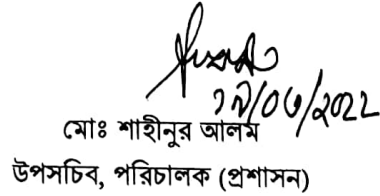 ১৯/০৬/২০২২
মোঃ শাহীনুর আলম
উপসচিব, পরিচালক (প্রশাসন)